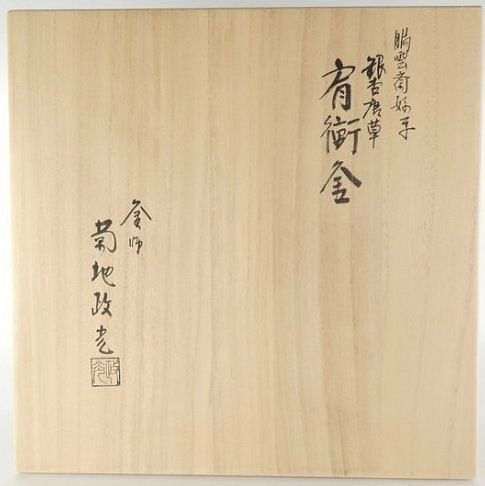 鵬雲斎好写
銀杏唐草
肩衝釜
釜師
菊地政光
政光